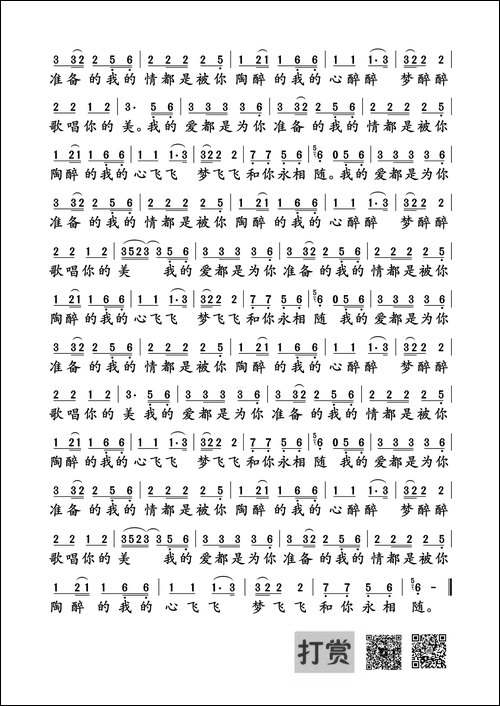 3 32 2 5 6 | 2 2 2 2 5 | 1 21 1 6 6 | 1 1 1·3 | 322 2 |
准备 的我的 情都是被你 陶醉 的我的 心醉醉 梦醉醉
2 2 1 2 | 3· 5 6 | 3 3 3 3 6 | 3 32 2 5 6 | 2 2 2 2 5 |
歌唱你的 美。我的 爱都是为你 准备 的我的 情都是被你
1 21 1 6 6 | 1 1 1·3 | 322 2 | 7 7 5 6 | 5 6 0 5 6 | 3 3 3 3 6 |
陶醉 的我的 心飞飞 梦飞飞和你永相 随。我的 爱都是为你
3 32 2 5 6 | 2 2 2 2 5 | 1 21 1 6 6 | 1 1 1·3 | 322 2 |
准备 的我的 情都是被你 陶醉 的我的 心醉醉 梦醉醉
2 2 1 2 | 3523 3 5 6 | 3 3 3 3 6 | 3 32 2 5 6 | 2 2 2 2 5 |
歌唱你的 美 我的 爱都是为你 准备 的我的 情都是被你
1 21 1 6 6 | 1 1 1·3 | 322 2 | 7 7 5 6 | 5 6 0 5 6 | 3 3 3 3 6 |
陶醉 的我的 心飞飞 梦飞飞和你永相 随 我的 爱都是为你
3 32 2 5 6 | 2 2 2 2 5 | 1 21 1 6 6 | 1 1 1·3 | 322 2 |
准备 的我的 情都是被你 陶醉 的我的 心醉醉 梦醉醉
2 2 1 2 | 3· 5 6 | 3 3 3 3 6 | 3 32 2 5 6 | 2 2 2 2 5 |
歌唱你的 美 我的 爱都是为你 准备 的我的 情都是被你
1 21 1 6 6 | 1 1 1·3 | 322 2 | 7 7 5 6 | 5 6 0 5 6 | 3 3 3 3 6 |
陶醉 的我的 心飞飞 梦飞飞和你永相 随 我的 爱都是为你
3 32 2 5 6 | 2 2 2 2 5 | 1 21 1 6 6 | 1 1 1·3 | 322 2 |
准备 的我的 情都是被你 陶醉 的我的 心醉醉 梦醉醉
2 2 1 2 | 3523 3 5 6 | 3 3 3 3 6 | 3 32 2 5 6 | 2 2 2 2 5 |
歌唱你的 美 我的 爱都是为你 准备 的我的 情都是被你
1 21 1 6 6 | 1 1 1·3 | 322 2 | 7 7 5 6 | 5 6 -
陶醉 的我的 心飞飞 梦飞飞 和你永相 随。
打赏